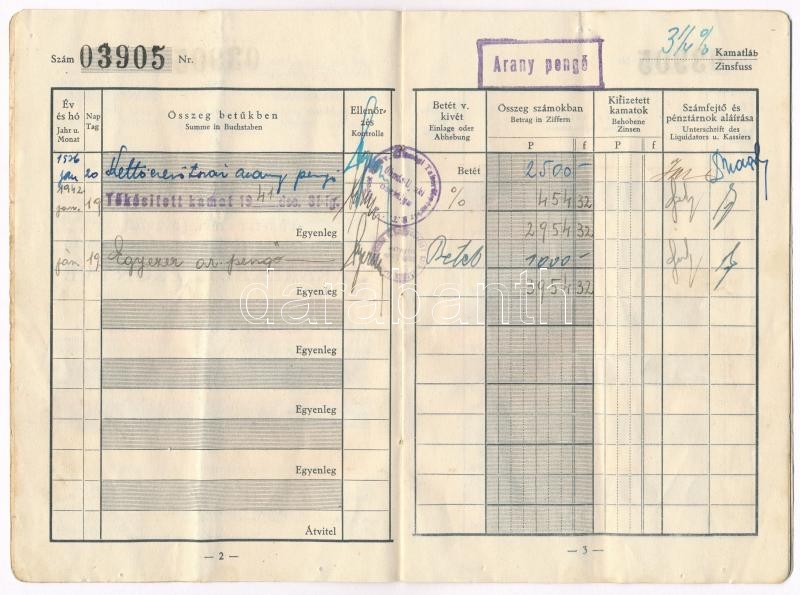 Szám 03905 Nr.
Arany pengő
3 1/4 % Kamatláb
Zinsfuss
Év és hó
Jahr u. Monat
Nap
Tag
Összeg betükben
Summe in Buchstaben
Ellenőrzés
Kontrolle
Betét v. kivét
Einlage oder Abhebung
Összeg számokban
Betrag in Ziffern
P f
Kifizetett kamatok
Behobene Zinsen
P f
Számfejtő és pénztárnok aláírása
Unterschrift des Liquidators u. Kassiers
jan 20 arany pengő Betét 2500 –
1942 jan. 19 Tőkésitett kamat 19 41 dec. 31-ig % 454 32
Egyenleg 2954 32
ján 19 Egyezer ar. pengő Betét 1000 –
Egyenleg 3954 32
Egyenleg
Egyenleg
Egyenleg
Egyenleg
Átvitel
— 2 —
— 3 —
darabanth